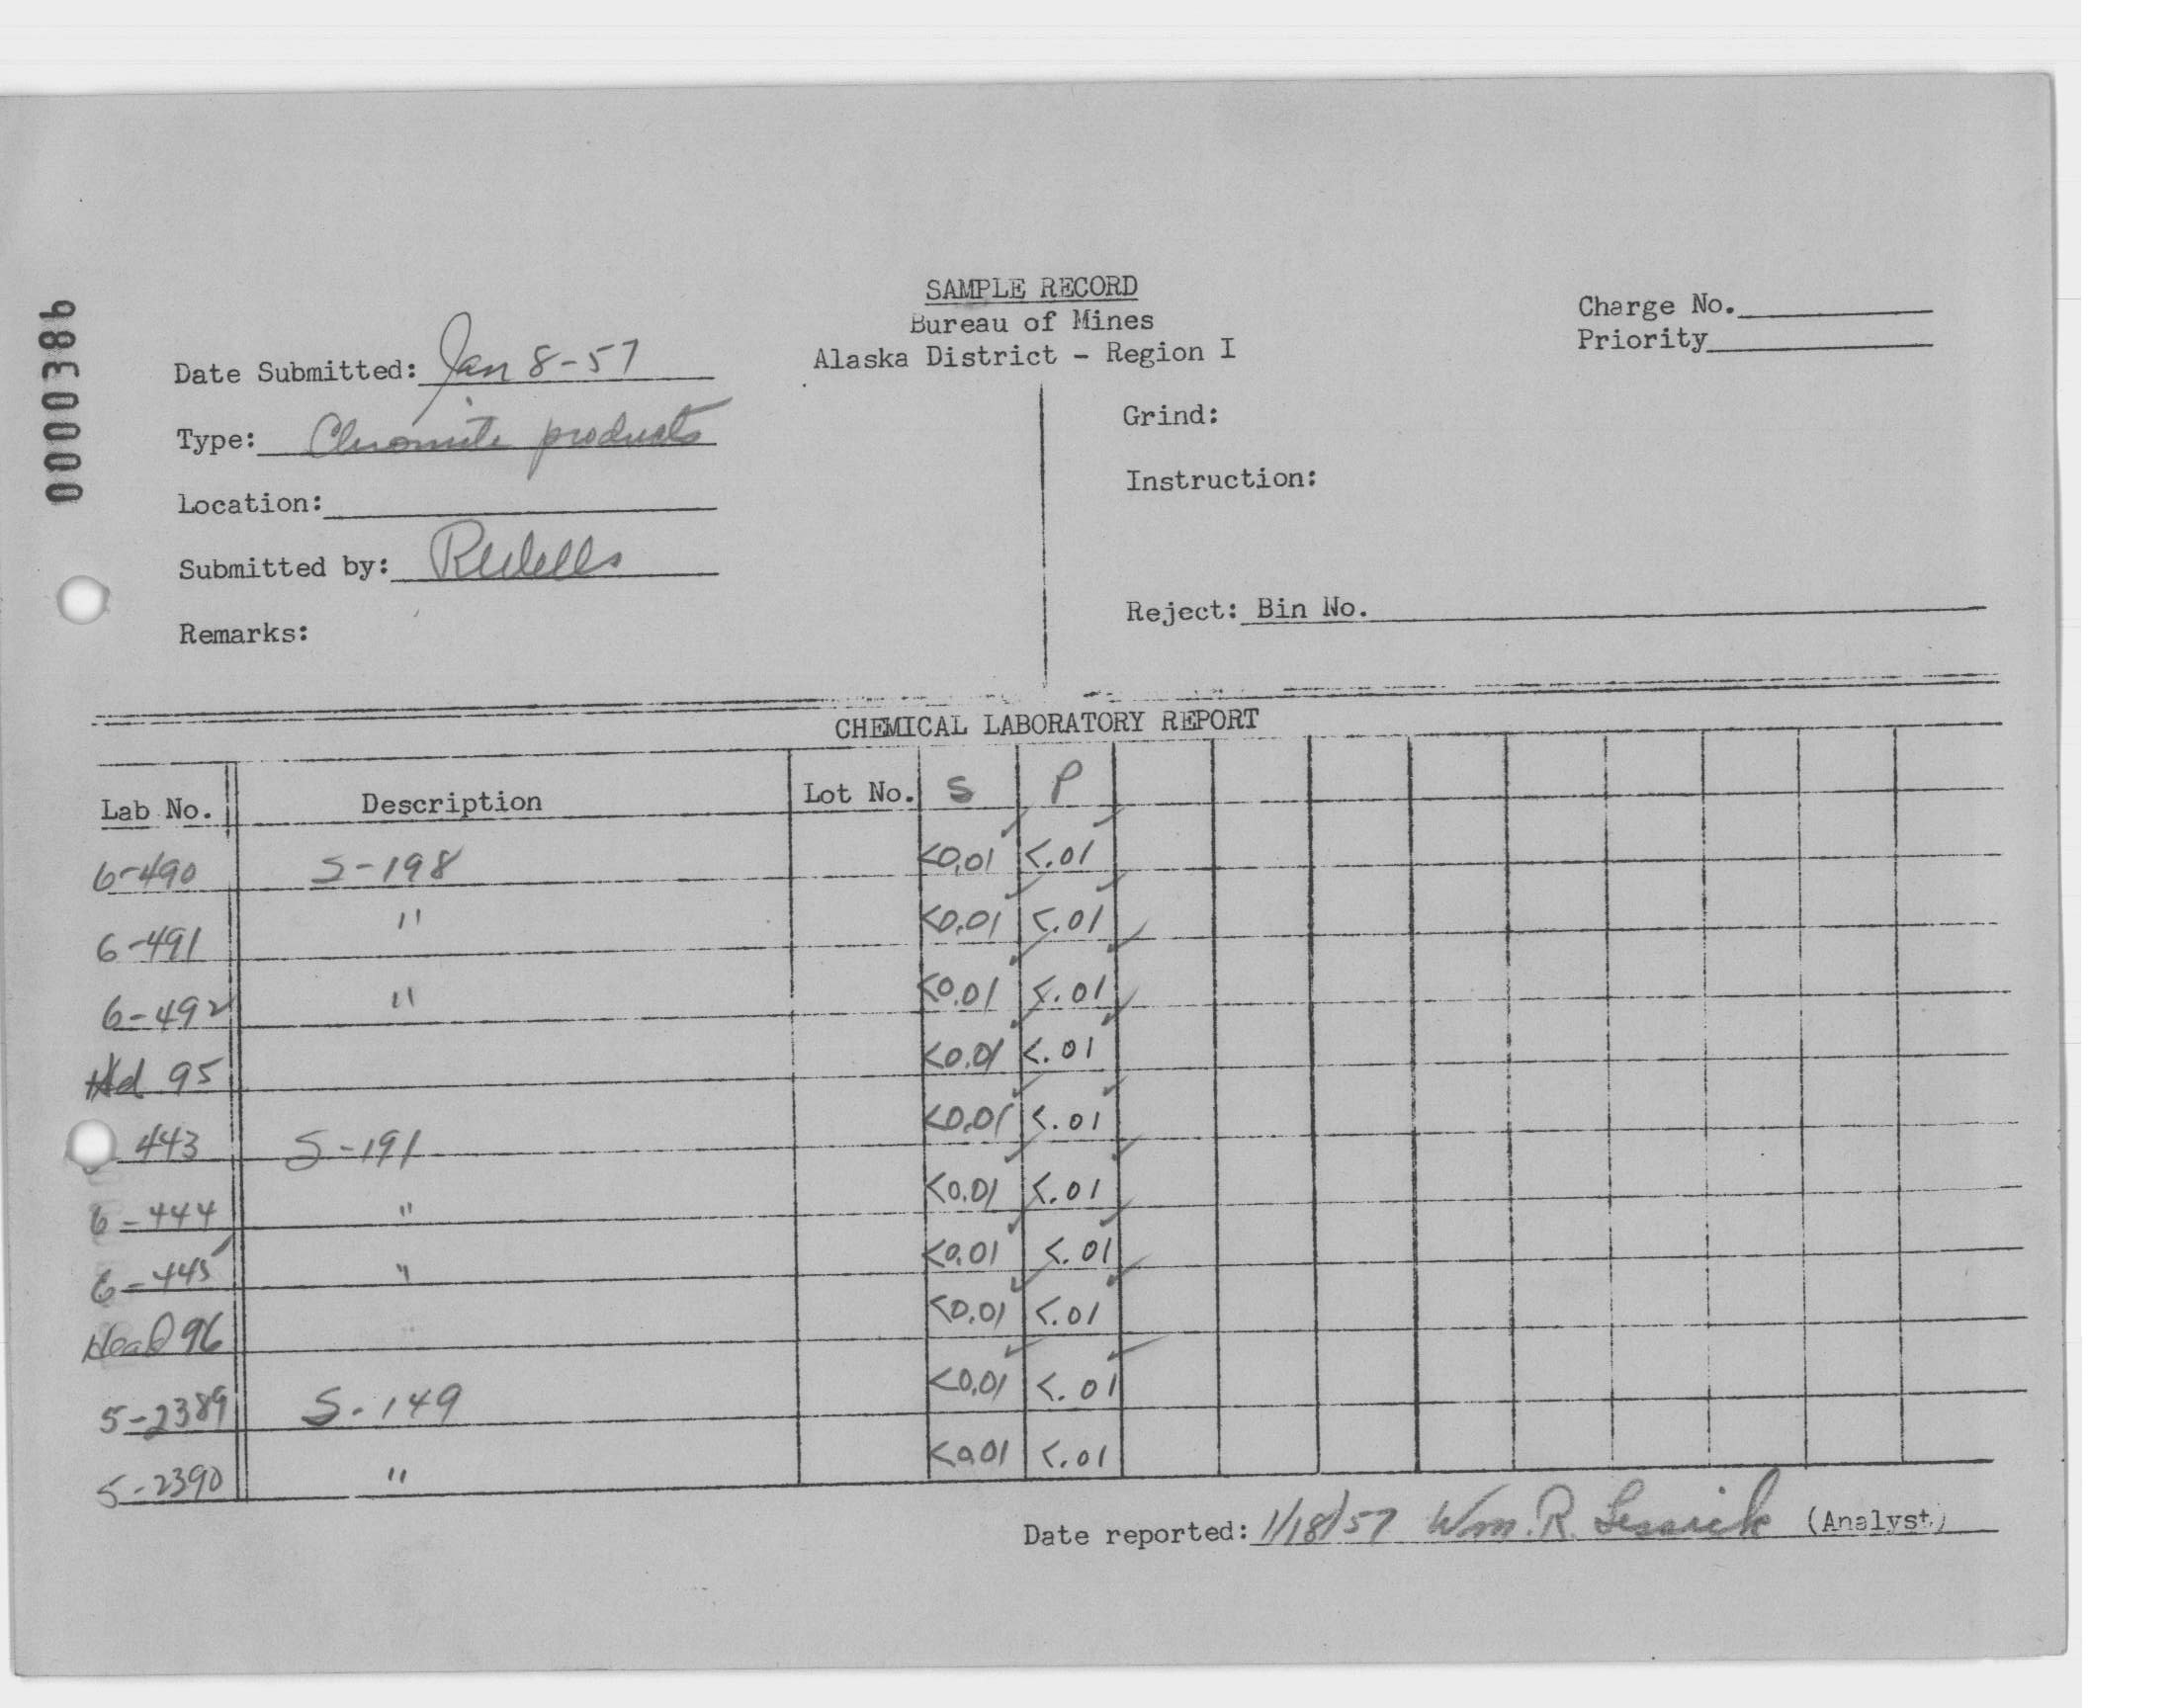 0000386
SAMPLE RECORD
Bureau of Mines
Alaska District - Region I
Charge No.
Priority
Date Submitted: Jan 8-57
Type: Chromite products
Location:
Submitted by: RWells
Remarks:
Grind:
Instruction:
Reject: Bin No.
CHEMICAL LABORATORY REPORT
Lab No. Description Lot No. S P
6-490 S-198 <0.01 <.01
6-491 " <0.01 <.01
6-492 " <0.01 <.01
Hd 95 <0.01 <.01
443 S-191 <0.01 <.01
6-444 " <0.01 <.01
6-445 " <0.01 <.01
Head 96 <0.01 <.01
5-2389 S-149 <0.01 <.01
5-2390 " <0.01 <.01
Date reported: 1/18/57 Wm. R. (Analyst)